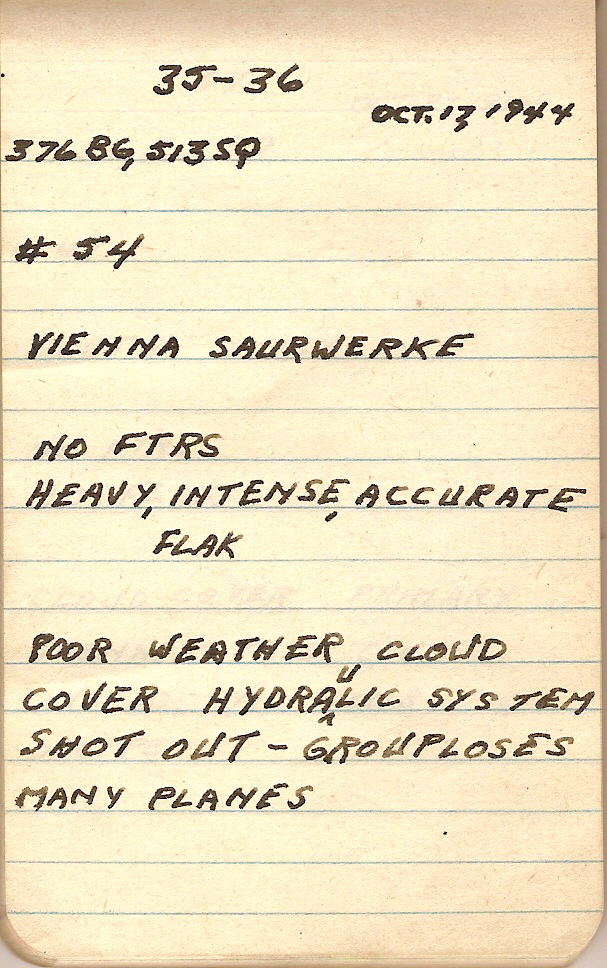 35-36
OCT. 17, 1944
376 BG, 513 SQ
# 54
VIENNA SAURWERKE
NO FTRS
HEAVY, INTENSE, ACCURATE
FLAK
POOR WEATHER CLOUD
COVER HYDRAULIC SYSTEM
SHOT OUT - GROUP LOSES
MANY PLANES